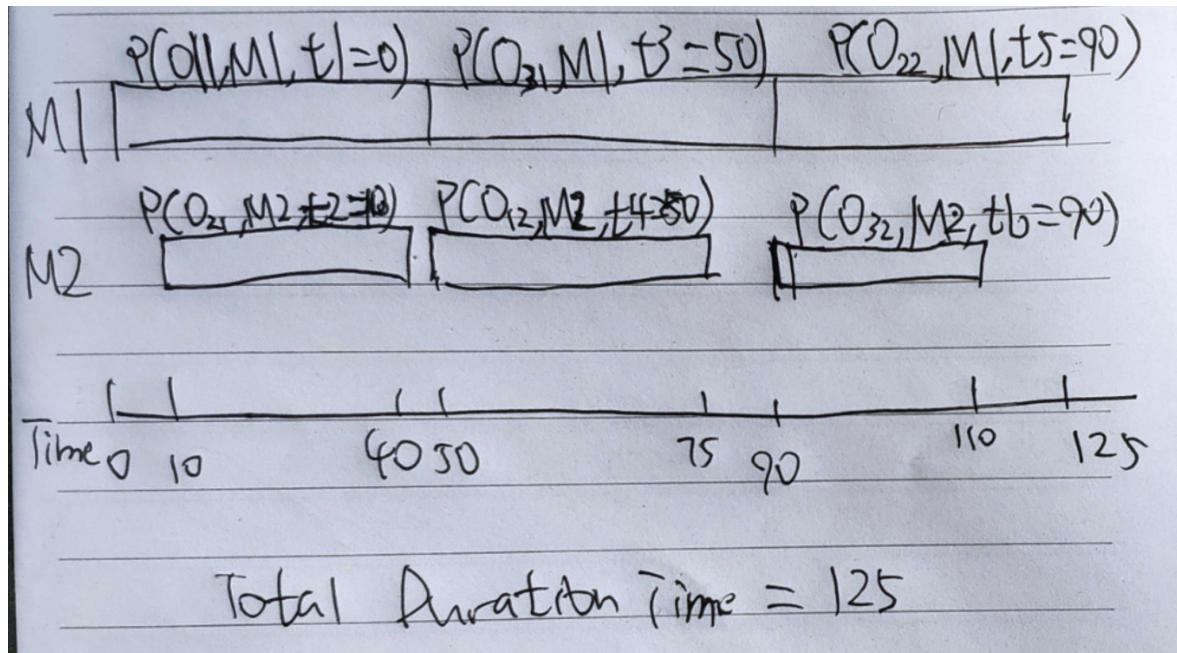 P(O11,M1,t1=0) P(O31,M1,t3=50) P(O22,M1,t5=90)
M1
P(O21,M2,t2=10) P(O12,M2,t4=50) P(O32,M2,t6=90)
M2
Time 0 10 40 50 75 90 110 125
Total Duration Time = 125